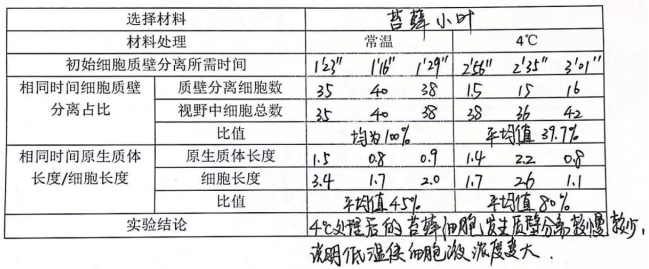 选择材料 苔藓小叶
材料处理 常温 4℃
初始细胞质壁分离所需时间 1'23" 1'16" 1'29" 2'56" 2'35" 3'01"
相同时间细胞质壁分离占比 质壁分离细胞数 35 40 38 15 15 16
视野中细胞总数 35 40 38 38 36 42
比值 均为100% 平均值 39.7%
相同时间原生质体长度/细胞长度 原生质体长度 1.5 0.8 0.9 1.4 2.2 0.8
细胞长度 3.4 1.7 2.0 1.7 2.6 1.1
比值 平均值45% 平均值80%
实验结论 4℃处理后的苔藓细胞,发生质壁分离较慢较少,
说明低温使细胞液浓度变大.